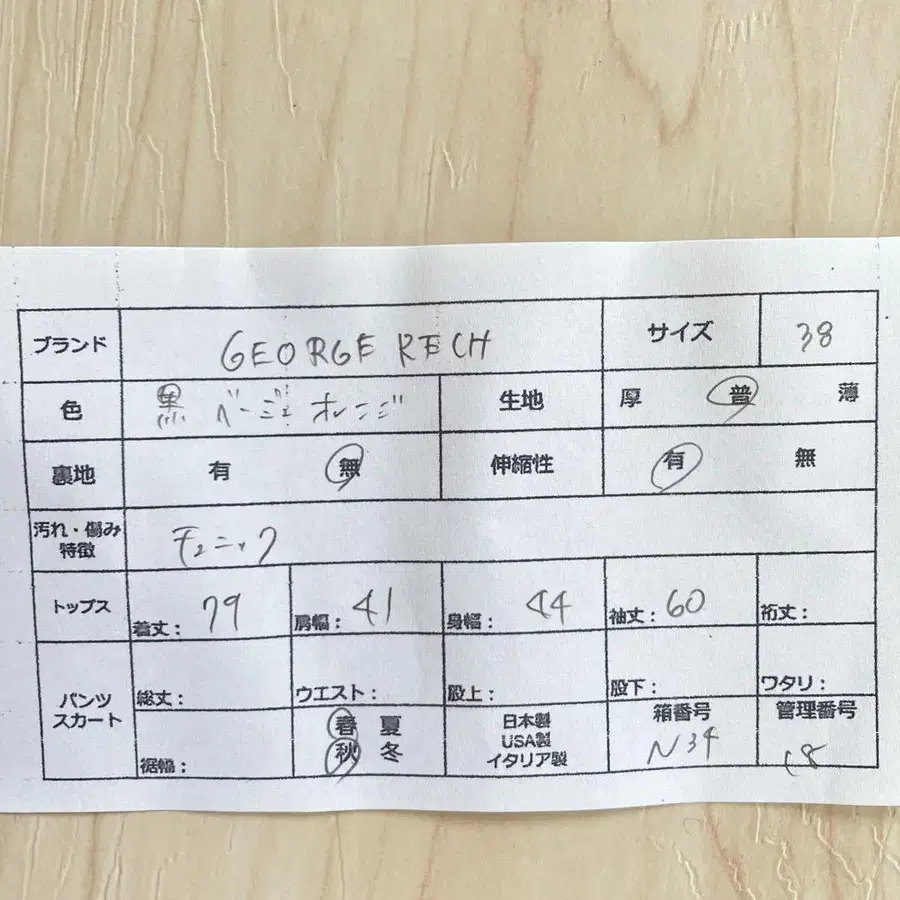 ブランド GEORGE RECH サイズ 38
色 黒 ベージュ オレンジ 生地 厚 普 薄
裏地 有 無 伸縮性 有 無
汚れ・傷み
特徴 チュニック
トップス 着丈: 79 肩幅: 41 身幅: 44 袖丈: 60 裄丈:
パンツ
スカート 総丈: ウエスト: 股上: 股下: ワタリ:
裾幅: 春 夏
秋 冬
日本製
USA製
イタリア製
箱番号
N34
管理番号
18